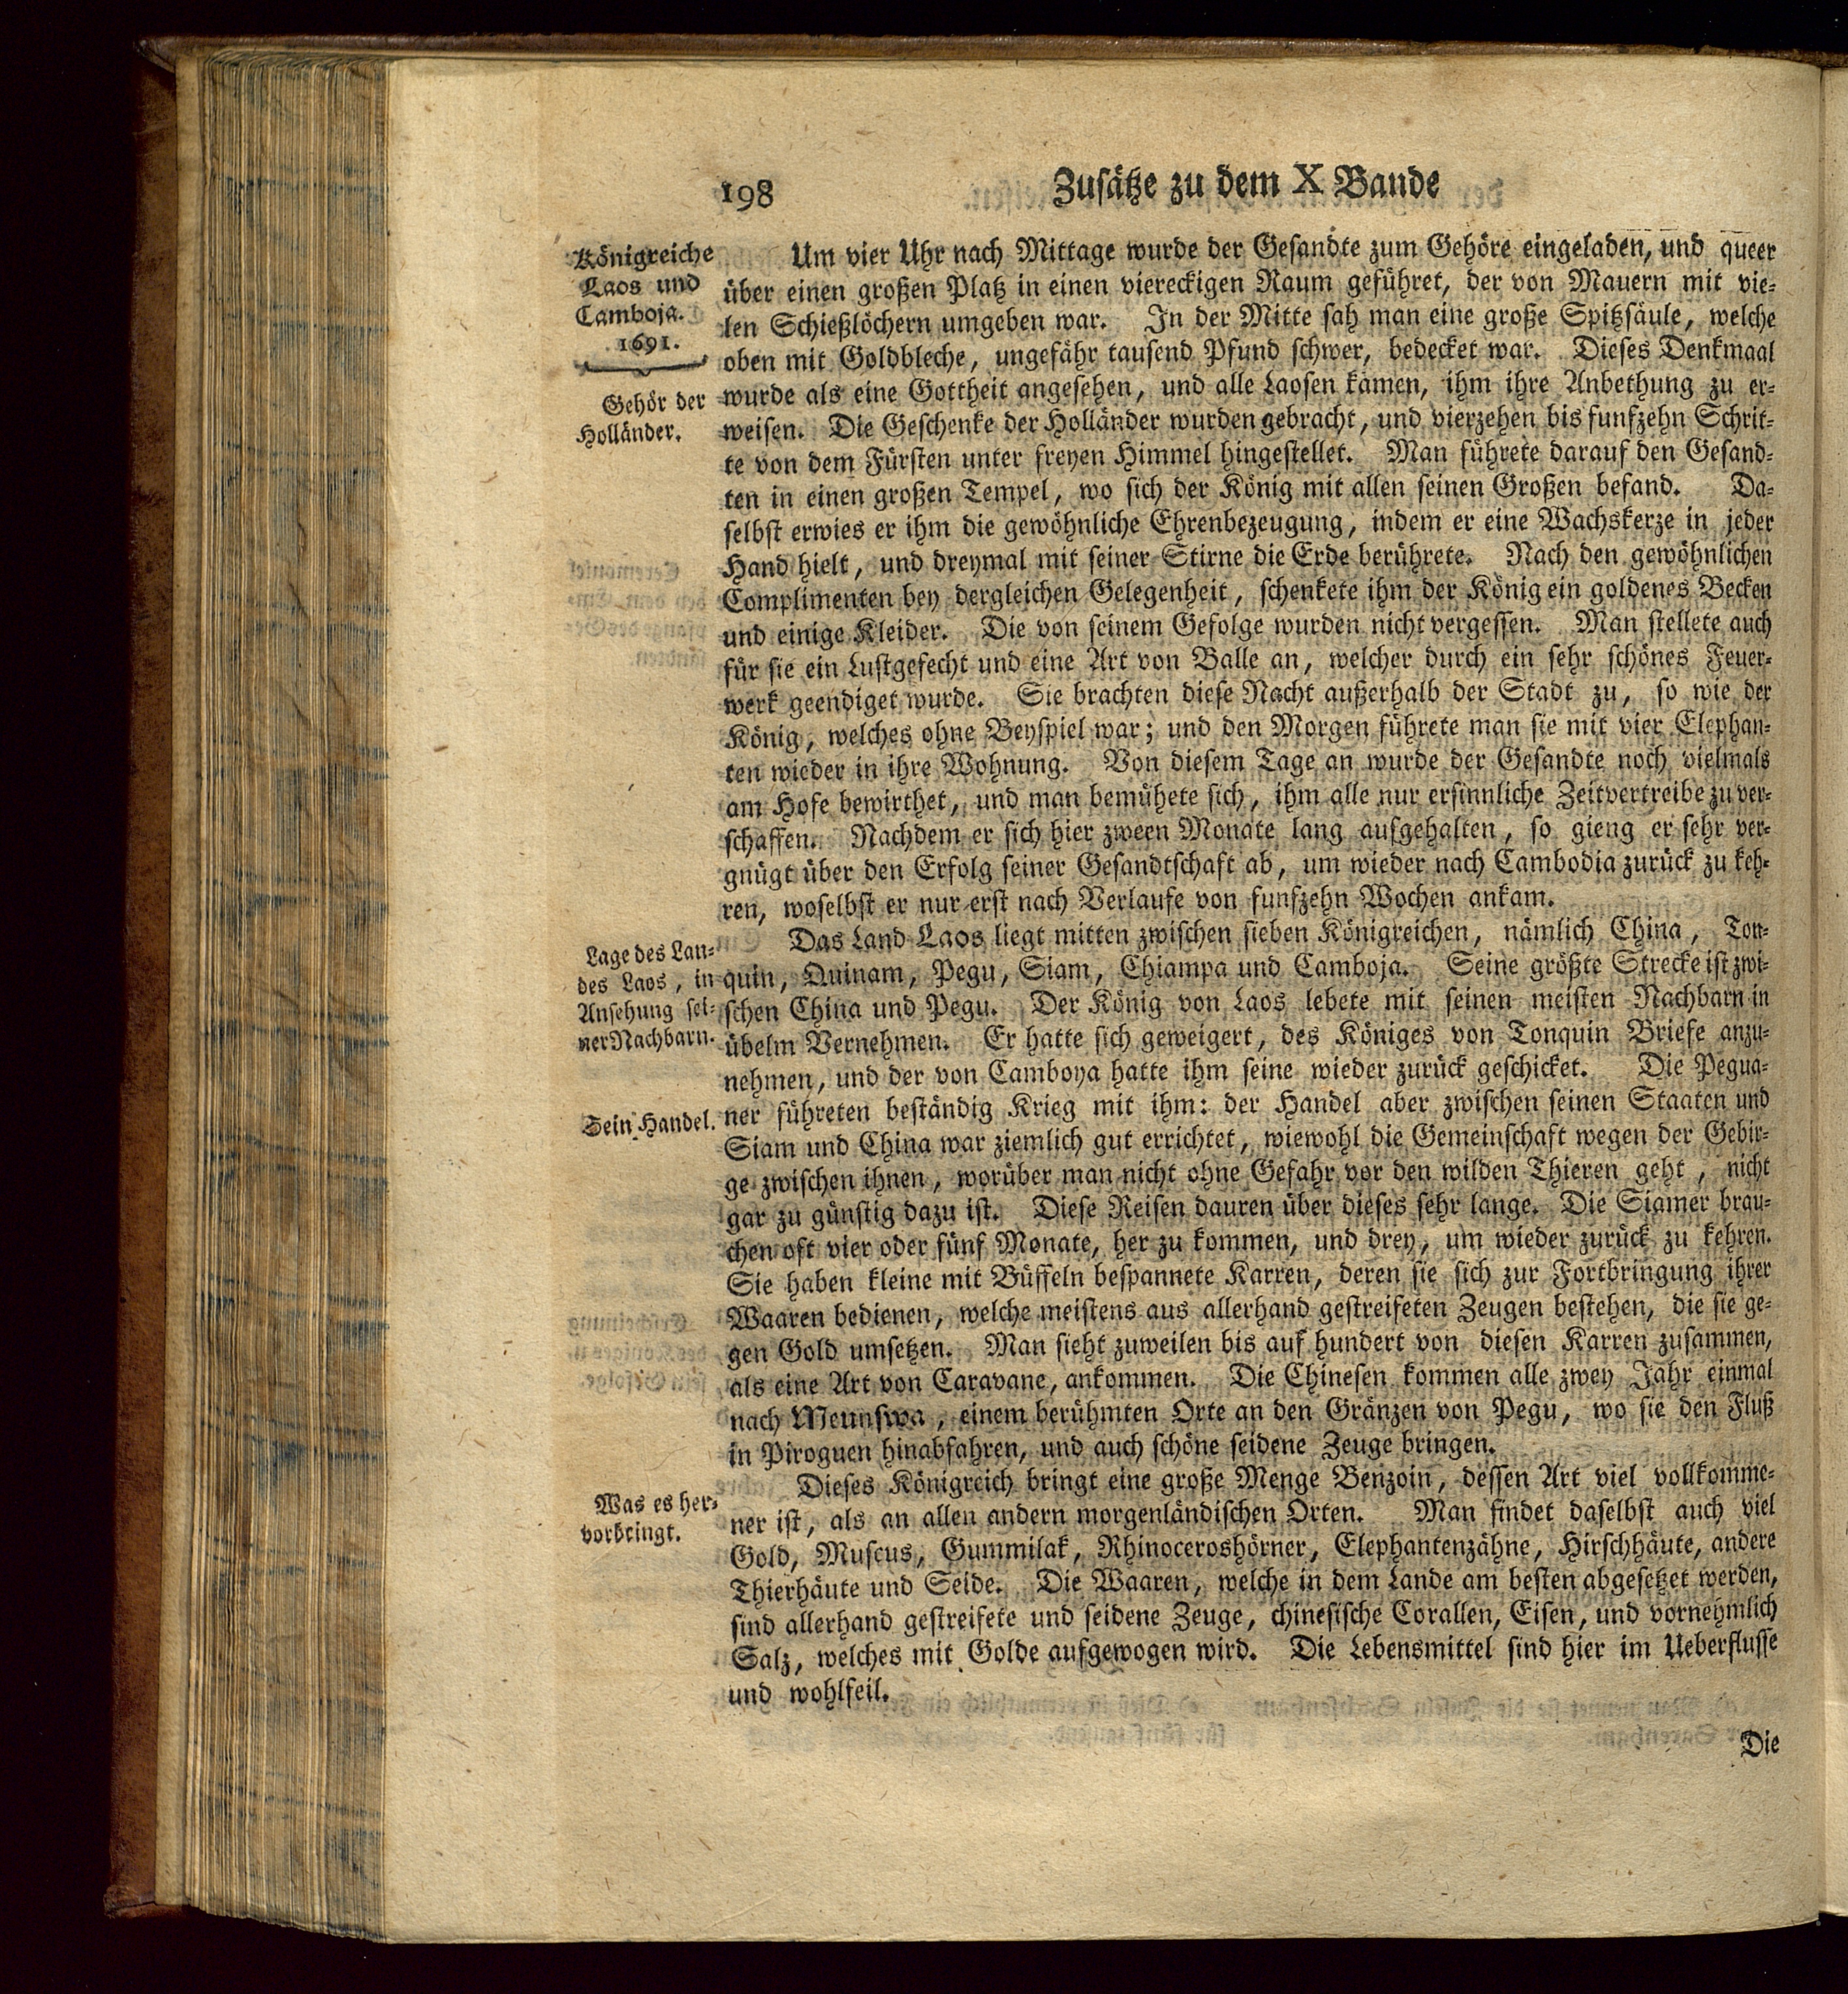 198
Zusätze zu dem X Bande
Königreiche
Laos und
Camboja.
1691.
Gehör der
Holländer.
Um vier Uhr nach Mittage wurde der Gesandte zum Gehöre eingeladen, und queer
über einen großen Platz in einen viereckigen Raum geführet, der von Mauern mit vie-
len Schießlöchern umgeben war. In der Mitte sah man eine große Spitzsäule, welche
oben mit Goldbleche, ungefähr tausend Pfund schwer, bedecket war. Dieses Denkmaal
wurde als eine Gottheit angesehen, und alle Laosen kamen, ihm ihre Anbethung zu er-
weisen. Die Geschenke der Holländer wurden gebracht, und vierzehen bis funfzehn Schrit-
te von dem Fürsten unter freyen Himmel hingestellet. Man führete darauf den Gesand-
ten in einen großen Tempel, wo sich der König mit allen seinen Großen befand. Da-
selbst erwies er ihm die gewöhnliche Ehrenbezeugung, indem er eine Wachskerze in jeder
Hand hielt, und dreymal mit seiner Stirne die Erde berührete. Nach den gewöhnlichen
Complimenten bey dergleichen Gelegenheit, schenkete ihm der König ein goldenes Becken
und einige Kleider. Die von seinem Gefolge wurden nicht vergessen. Man stellete auch
für sie ein Lustgefecht und eine Art von Balle an, welcher durch ein sehr schönes Feuer-
werk geendiget wurde. Sie brachten diese Nacht außerhalb der Stadt zu, so wie der
König, welches ohne Beyspiel war; und den Morgen führete man sie mit vier Elephan-
ten wieder in ihre Wohnung. Von diesem Tage an wurde der Gesandte noch vielmals
am Hofe bewirthet, und man bemühete sich, ihm alle nur ersinnliche Zeitvertreibe zu ver-
schaffen. Nachdem er sich hier zween Monate lang aufgehalten, so gieng er sehr ver-
gnügt über den Erfolg seiner Gesandtschaft ab, um wieder nach Cambodia zurück zu keh-
ren, woselbst er nur erst nach Verlaufe von funfzehn Wochen ankam.
Lage des Lan-
des Laos, in
Ansehung sei-
ner Nachbarn.
Das Land Laos liegt mitten zwischen sieben Königreichen, nämlich China, Ton-
quin, Quinam, Pegu, Siam, Chiampa und Camboja. Seine größte Strecke ist zwi-
schen China und Pegu. Der König von Laos lebete mit seinen meisten Nachbarn in
übelm Vernehmen. Er hatte sich geweigert, des Königes von Tonquin Briefe anzu-
nehmen, und der von Camboya hatte ihm seine wieder zurück geschicket. Die Pegua-
Sein Handel.
ner führeten beständig Krieg mit ihm: der Handel aber zwischen seinen Staaten und
Siam und China war ziemlich gut errichtet, wiewohl die Gemeinschaft wegen der Gebir-
ge zwischen ihnen, worüber man nicht ohne Gefahr vor den wilden Thieren geht, nicht
gar zu günstig dazu ist. Diese Reisen dauren über dieses sehr lange. Die Siamer brau-
chen oft vier oder fünf Monate, her zu kommen, und drey, um wieder zurück zu kehren.
Sie haben kleine mit Büffeln bespannete Karren, deren sie sich zur Fortbringung ihrer
Waaren bedienen, welche meistens aus allerhand gestreifeten Zeugen bestehen, die sie ge-
gen Gold umsetzen. Man sieht zuweilen bis auf hundert von diesen Karren zusammen,
als eine Art von Caravane, ankommen. Die Chinesen kommen alle zwey Jahr einmal
nach Meunswa, einem berühmten Orte an den Gränzen von Pegu, wo sie den Fluß
in Piroguen hinabfahren, und auch schöne seidene Zeuge bringen.
Was es her-
vorbringt.
Dieses Königreich bringt eine große Menge Benzoin, dessen Art viel vollkomme-
ner ist, als an allen andern morgenländischen Orten. Man findet daselbst auch viel
Gold, Muscus, Gummilak, Rhinoceroshörner, Elephantenzähne, Hirschhäute, andere
Thierhäute und Seide. Die Waaren, welche in dem Lande am besten abgesetzet werden,
sind allerhand gestreifete und seidene Zeuge, chinesische Corallen, Eisen, und vornehmlich
Salz, welches mit Golde aufgewogen wird. Die Lebensmittel sind hier im Ueberflusse
und wohlfeil.
Die